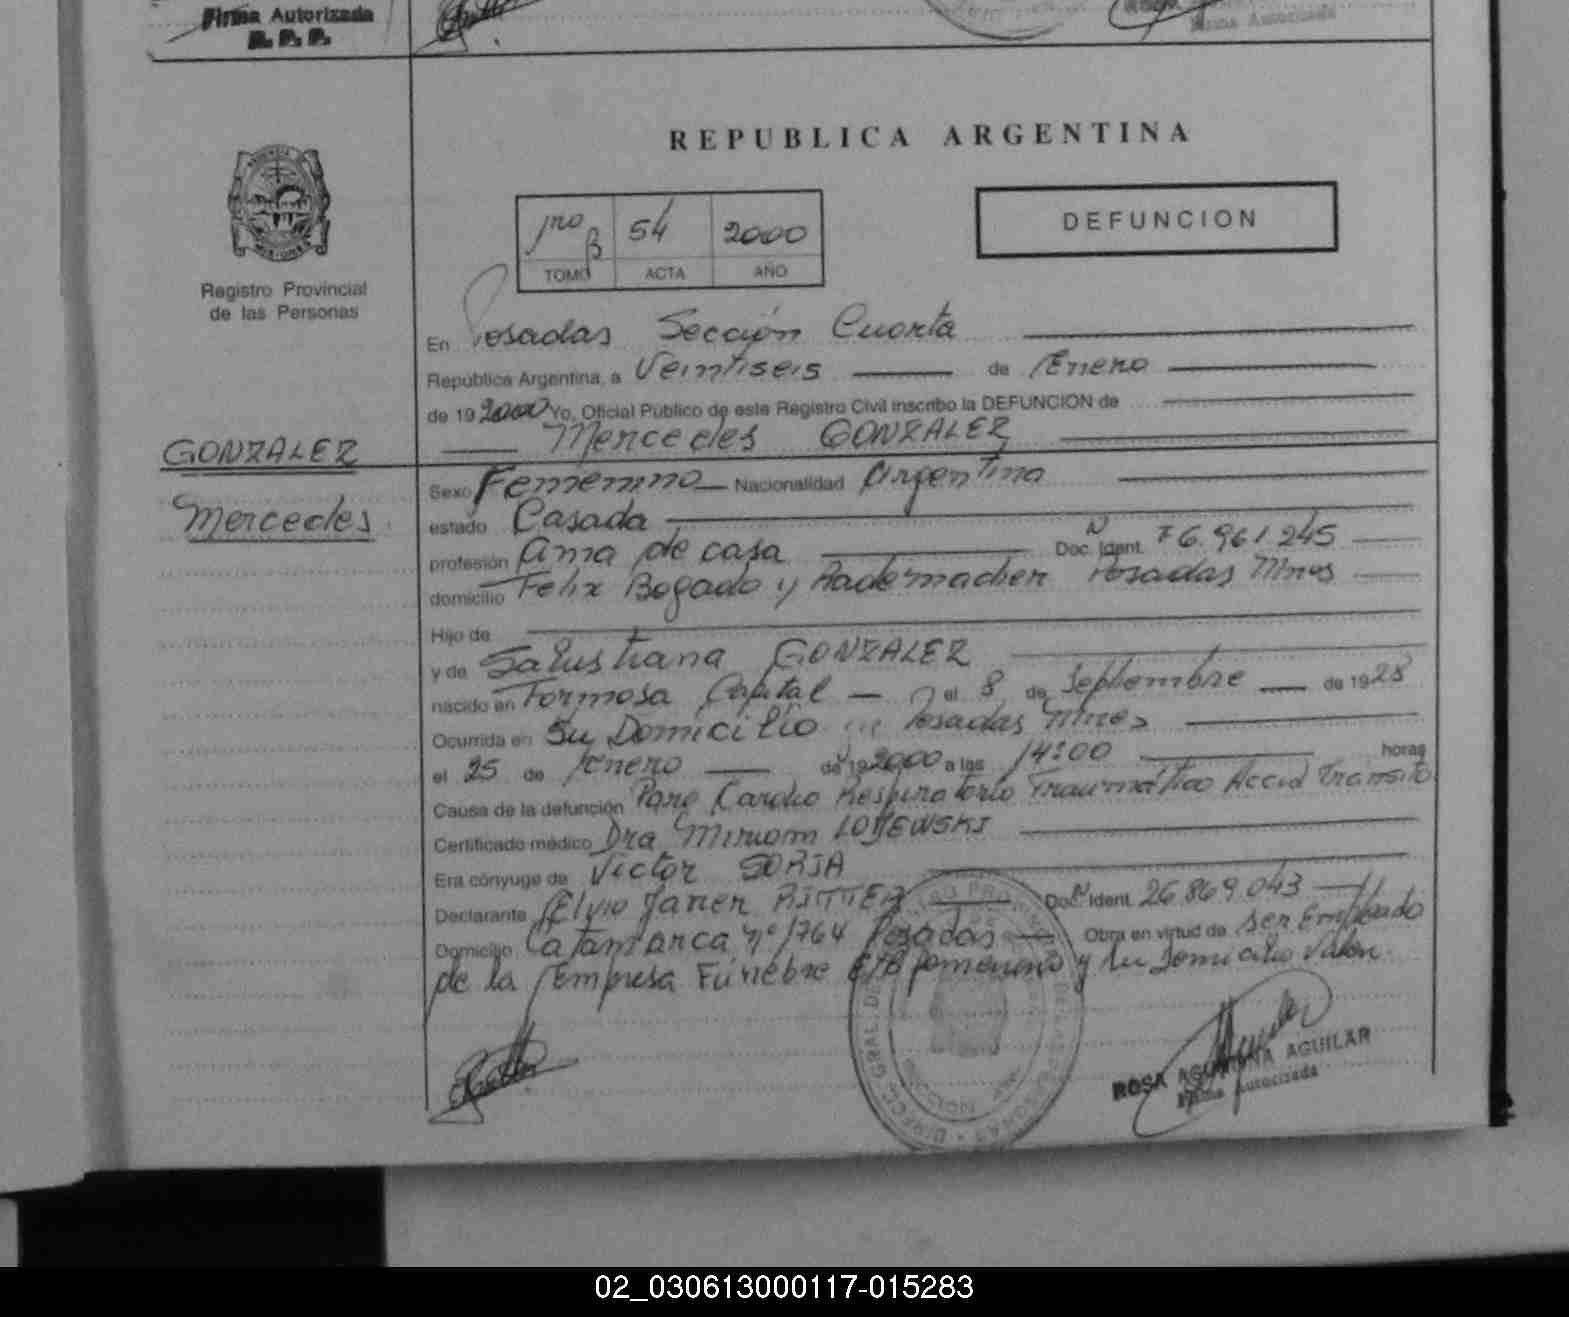 Firma Autorizada
R. P. P.
Firma Autorizada
REPUBLICA ARGENTINA
1ro B 54 2000
TOMO ACTA AÑO
DEFUNCION
Registro Provincial
de las Personas
En Posadas Sección Cuarta
República Argentina, a Veintiseis de Enero
de 19 2000 Yo, Oficial Público de este Registro Civil inscribo la DEFUNCION de
Mercedes GONZALEZ
GONZALEZ
Mercedes
Sexo Femenino Nacionalidad Argentina
estado Casada
profesión Ama de casa Doc. Ident. N 6.961.245
domicilio Felix Bogado y Rademacher Posadas Mnes
Hijo de
y de Salustiana GONZALEZ
nacido en Formosa Capital el 8 de Septiembre de 1928
Ocurrida en Su Domicilio en Posadas Mnes
el 25 de Enero de 19 2000 a las 14:00 horas
Causa de la defunción Paro Cardio Respiratorio Traumático Accid Transito
Certificado médico Dra Miriam LOJEWSKI
Era cónyuge de Victor SORIA
Declarante Elvio Javier RITTER Doc. Ident. N 26.869.043
Domicilio Catamarca nº 1764 Posadas Obra en virtud de ser Empleado
de la Empresa Fúnebre E/B femenino y su Domicilio Valen.
ROSA AGUILAR
Firma Autorizada
02_030613000117-015283